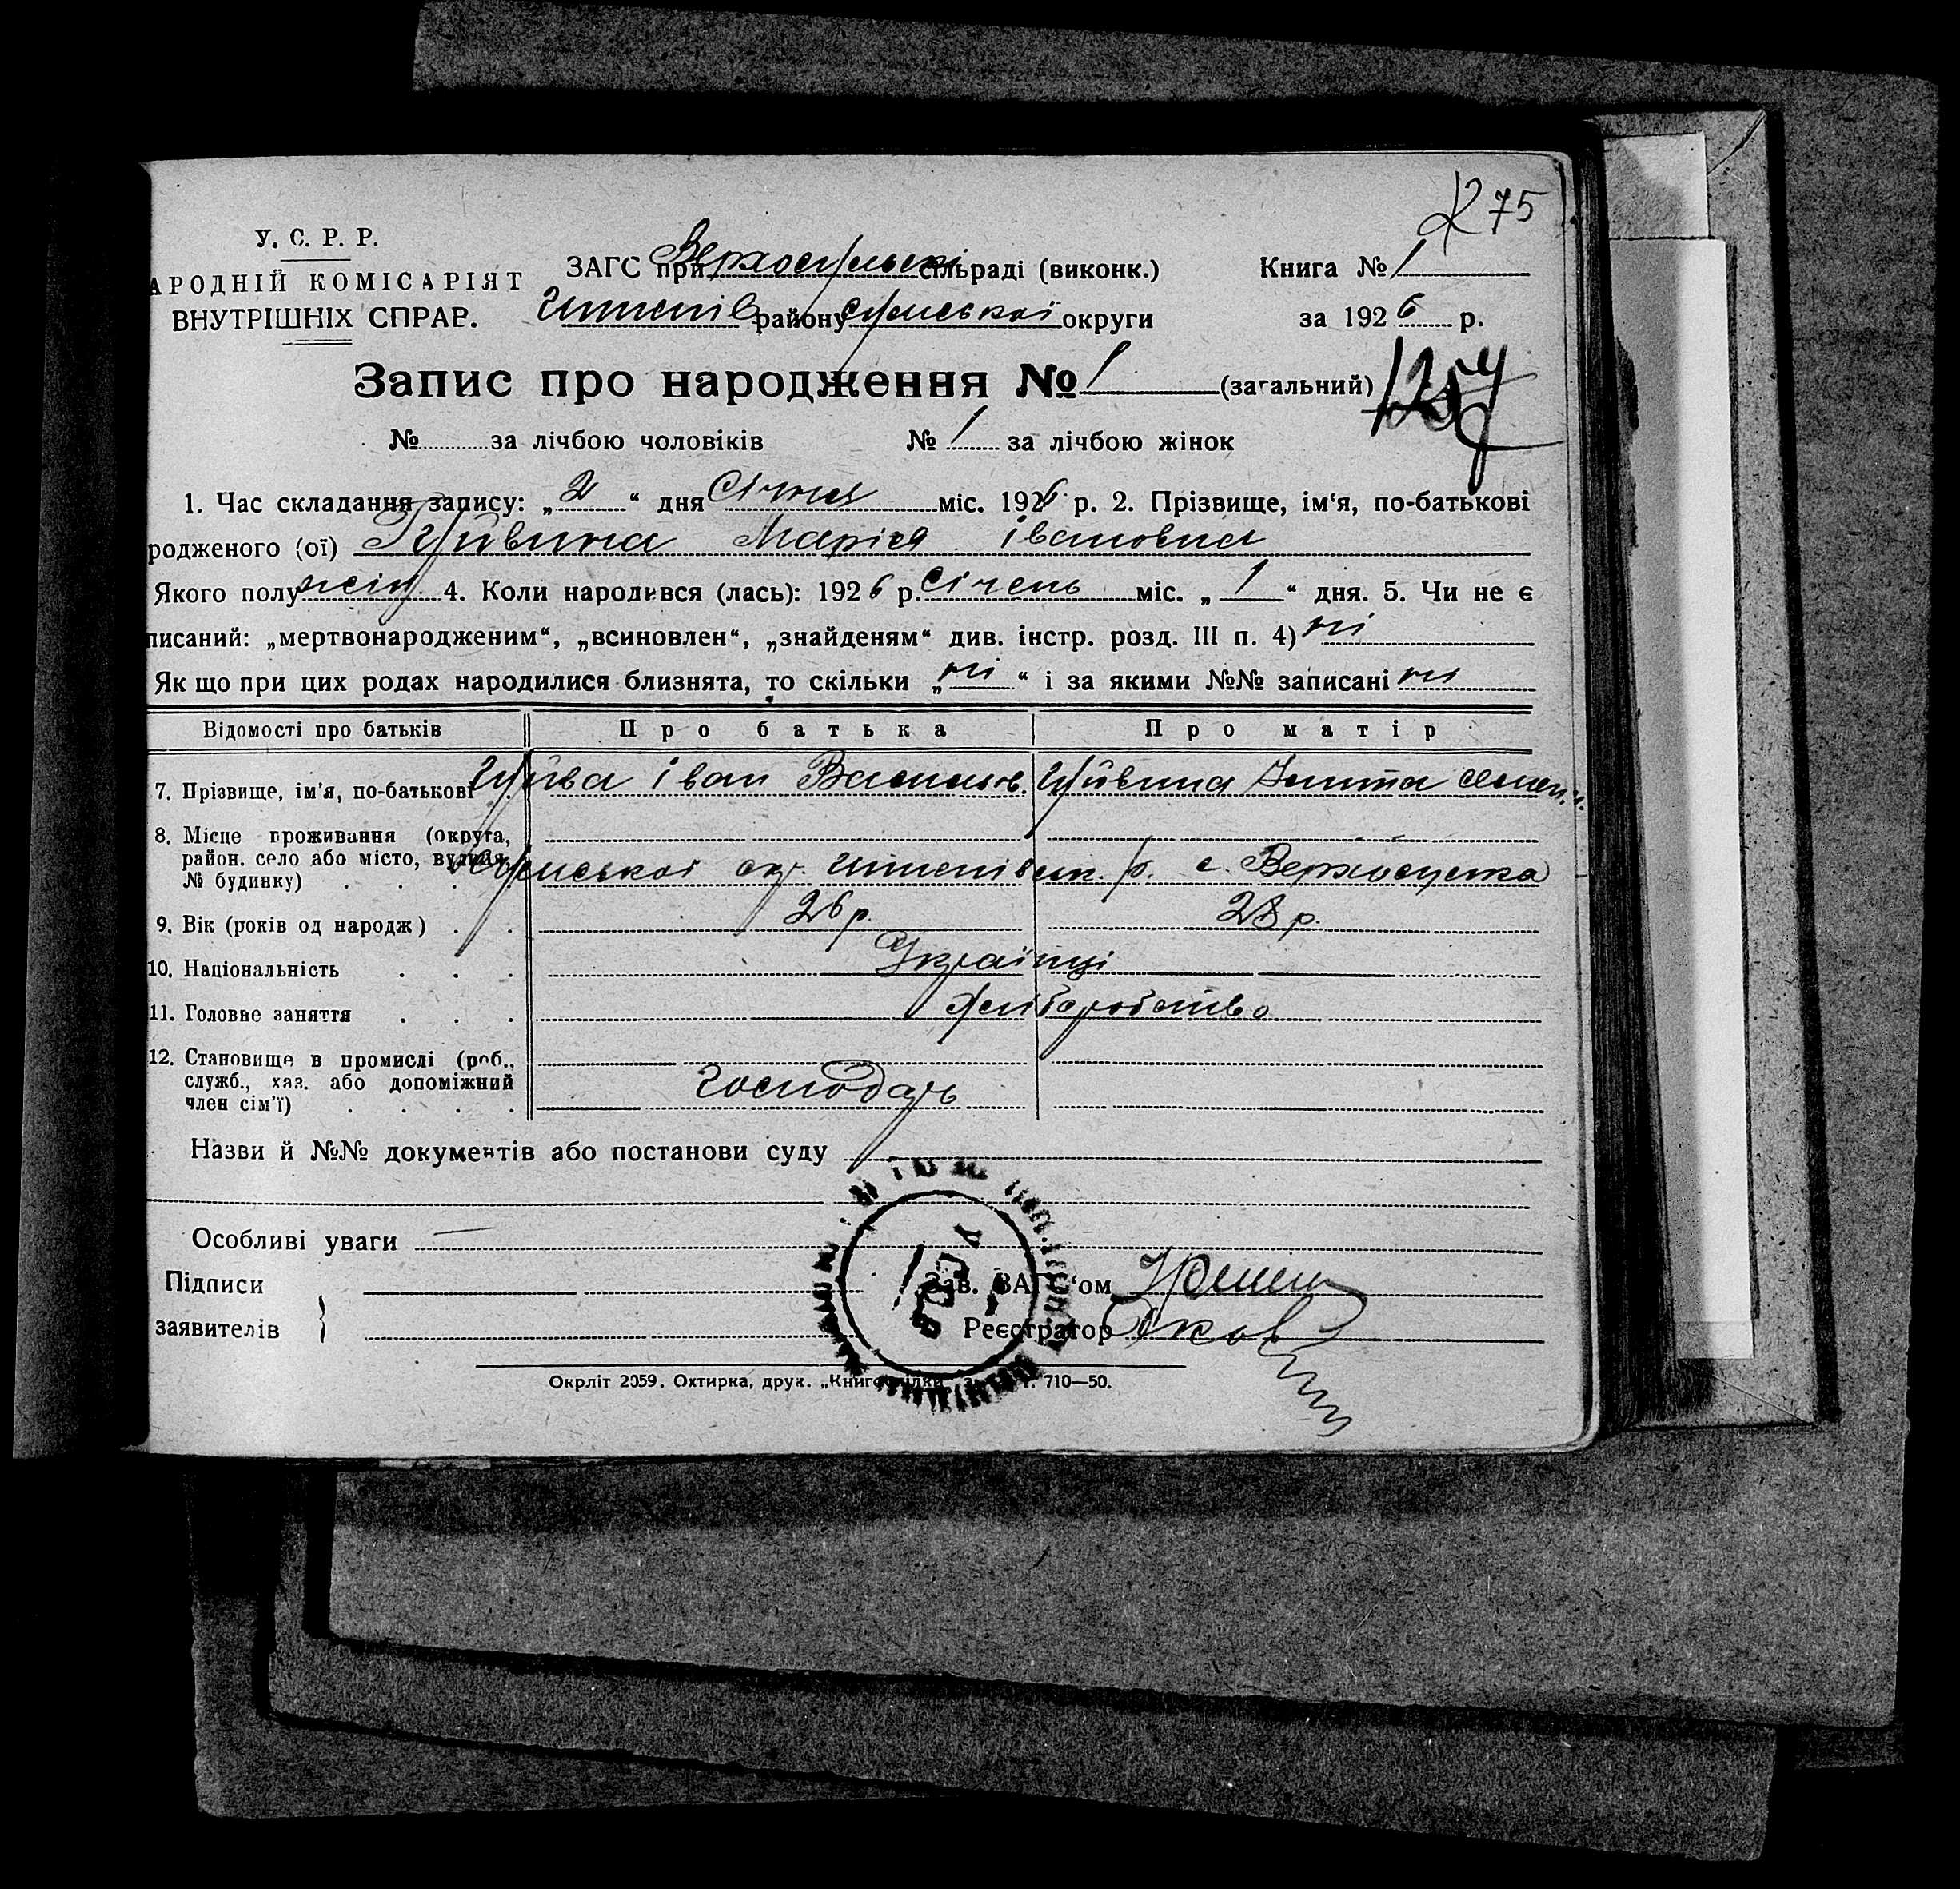 75
У. С. Р. Р.
АРОДНІЙ КОМІСАРІЯТ
ВНУТРІШНІХ СПРАВ.
ЗАГС при Верхосульські сільраді (виконк.)
Штепів району Сумської округи
Книга № 1
за 1926 р.
Запис про народження № 1 (загальний)
№ за лічбою чоловіків № 1 за лічбою жінок
1. Час складання запису: „2“ дня Січня міс. 1926 р. 2. Прізвище, ім‘я, по-батькові
родженого (ої) Марія Івановна
Якого полу жін. 4. Коли народився (лась): 1926 р. Січень міс. „1“ дня. 5. Чи не є
писаний: „мертвонародженим“, „всиновлен“, „знайденям“ див. інстр. розд. III п. 4) ні
Як що при цих родах народилися близнята, то скільки „ні“ і за якими №№ записані ні
Відомості про батьків Про батька Про матір
7. Прізвище, ім‘я, по-батькові Іван Васильов.
8. Місце проживання (округа,
район. село або місто, вулиця,
№ будинку) Сумської окр. Штепівськ. р. с. Верхосулка
9. Вік (років од народж) 26 р. 28 р.
10. Національність Українці
11. Головне заняття Хліборобство
12. Становище в промислі (роб.,
служб., хаз. або допоміжний
член сім‘ї) господарь
Назви й №№ документів або постанови суду
Особливі уваги
Підписи
заявителів
Зав. ЗАГС‘ом
Реєстратор
Окрліт 2059. Охтирка, друк. „Книгоспілки“ 710—50.